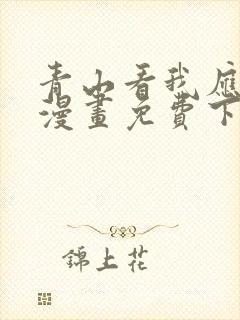 青山看我應
漫畫免費下
錦上花